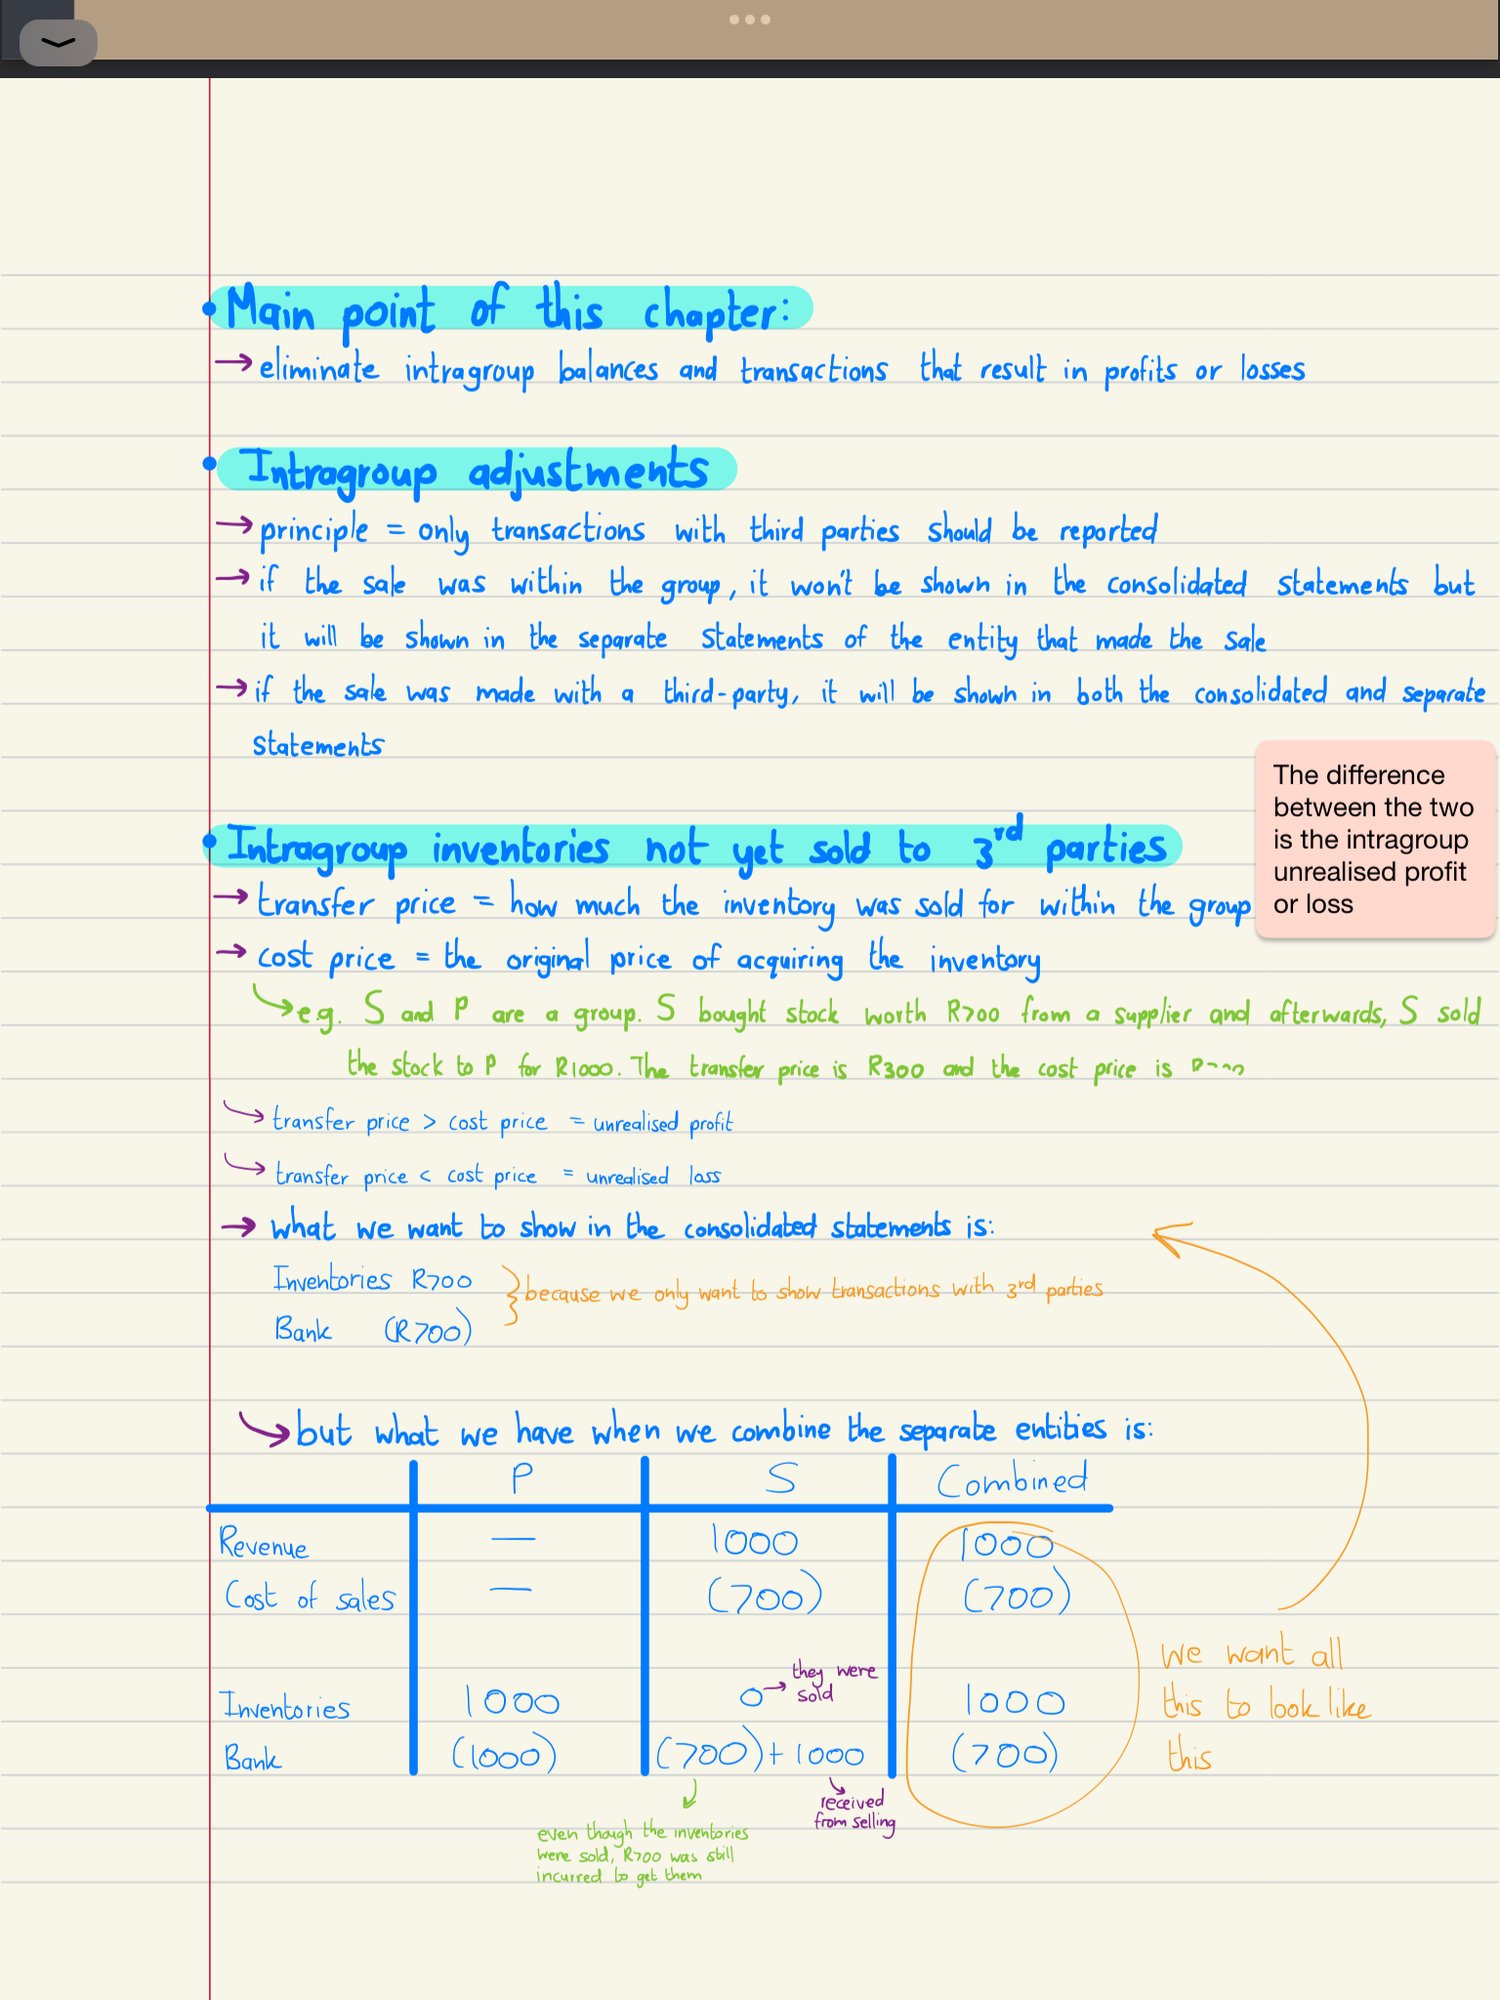 Main point of this chapter:
→ eliminate intragroup balances and transactions that result in profits or losses
Intragroup adjustments
→ principle = only transactions with third parties should be reported
→ if the sale was within the group, it won't be shown in the consolidated statements but
it will be shown in the separate statements of the entity that made the sale
→ if the sale was made with a third-party, it will be shown in both the consolidated and separate
statements
The difference
between the two
is the intragroup
unrealised profit
or loss
Intragroup inventories not yet sold to 3rd parties
→ transfer price = how much the inventory was sold for within the group
→ cost price = the original price of acquiring the inventory
e.g. S and P are a group. S bought stock worth R700 from a supplier and afterwards, S sold
the stock to P for R1000. The transfer price is R300 and the cost price is
transfer price > cost price = unrealised profit
transfer price < cost price = unrealised loss
→ what we want to show in the consolidated statements is:
Inventories R700
because we only want to show transactions with 3rd parties
Bank (R700)
but what we have when we combine the separate entities is:
P S Combined
Revenue — 1000 1000
Cost of sales — (700) (700)
they were
sold
Inventories 1000 0 1000
Bank (1000) (700) + 1000 (700)
we want all
this to look like
this
received
from selling
even though the inventories
were sold, R700 was still
incurred to get them